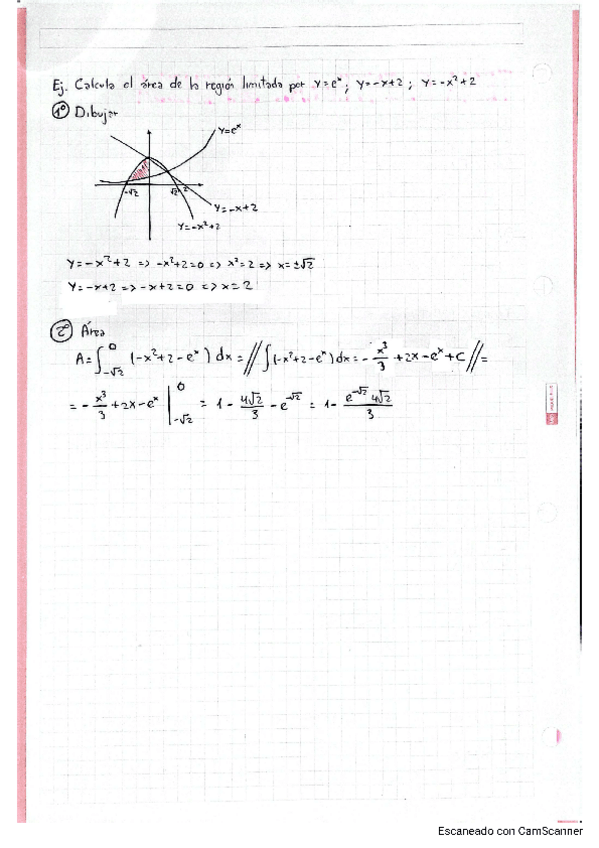 Ej. Calcula el área de la región limitada por y=eˣ; y=-x+2; y=-x²+2
1º Dibujar
y=eˣ
-√2 √2 2
y=-x+2
y=-x²+2
y=-x²+2 => -x²+2=0 => x²=2 => x=±√2
y=-x+2 => -x+2=0 => x=2
2º Área
A=∫_{-√2}^{0} (-x²+2-eˣ) dx = // ∫(-x²+2-eˣ) dx = -x³/3 + 2x - eˣ + C // =
= -x³/3 + 2x - eˣ |_{-√2}^{0} = 1 - 4√2/3 - e^{-√2} = 1 - e^{-√2} 4√2/3
Escaneado con CamScanner